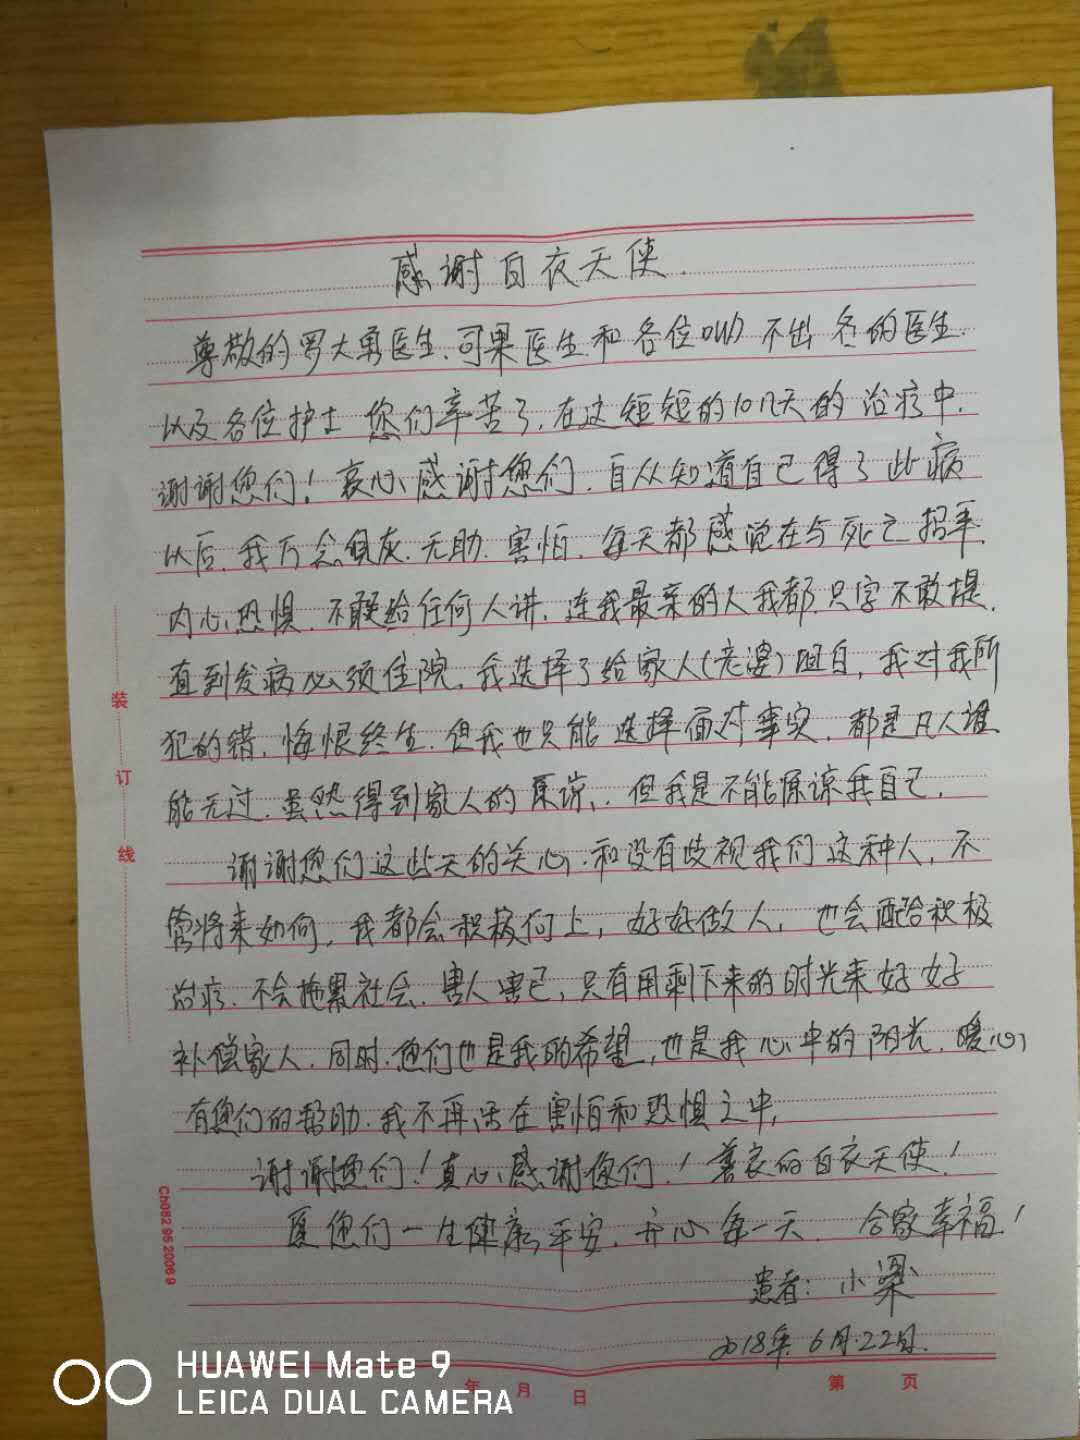 感谢白衣天使.
尊敬的罗大勇医生.可果医生和各位叫不出名的医生.
以及各位护士 您们辛苦了.在这短短的10几天的治疗中.
谢谢您们!衷心感谢您们.自从知道自己得了此病
以后.我万念俱灰.无助.害怕.每天都感觉在与死亡招手.
内心恐惧.不敢给任何人讲.连我最亲的人我都只字不敢提.
直到发病必须住院.我选择了给家人(老婆)坦白,我对我所
犯的错.悔恨终生.但我也只能选择面对事实.都是凡人谁
能无过.虽然得到家人的原谅,.但我是不能原谅我自己.
谢谢您们这些天的关心.和没有歧视我们这种人.不
管将来如何,我都会积极向上,好好做人,也会配合积极
治疗.不会拖累社会.害人害己,只有用剩下来的时光来好好
补偿家人.同时.您们也是我的希望,也是我心中的阳光.暖心,
有您们的帮助.我不再活在害怕和恐惧之中,
谢谢您们!真心感谢您们!善良的白衣天使!
愿您们一生健康平安.开心每一天.合家幸福!
患者:小梁
2018年6月.22日.
装
订
线
Ch082 95 2006 9
年 月 日
第 页
HUAWEI Mate 9
LEICA DUAL CAMERA